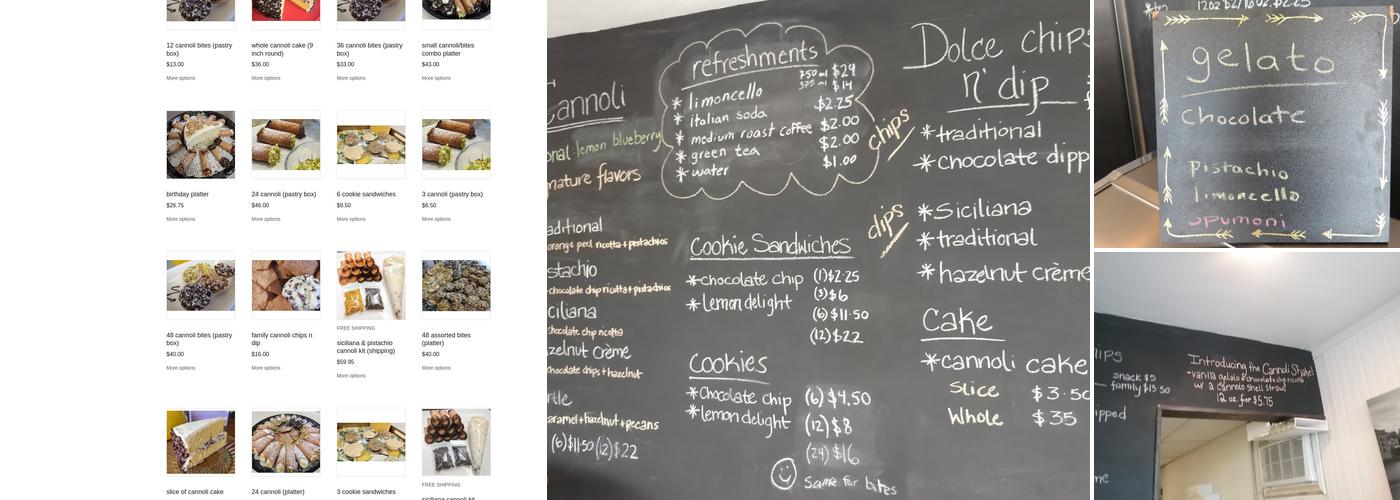 12 cannoli bites (pastry
box)
$13.00
More options
whole cannoli cake (9
inch round)
$36.00
More options
36 cannoli bites (pastry
box)
$33.00
More options
small cannoli/bites
combo platter
$43.00
More options
birthday platter
$26.75
More options
24 cannoli (pastry box)
$46.00
More options
6 cookie sandwiches
$9.50
More options
3 cannoli (pastry box)
$6.50
More options
48 cannoli bites (pastry
box)
$40.00
More options
family cannoli chips n
dip
$16.00
More options
FREE SHIPPING
siciliana & pistachio
cannoli kit (shipping)
$59.95
More options
48 assorted bites
(platter)
$40.00
More options
slice of cannoli cake
24 cannoli (platter)
3 cookie sandwiches
FREE SHIPPING
siciliana cannoli kit
cannoli
onal: lemon blueberry
nature flavors
aditional
orange peel ricotta + pistachios
stachio
chocolate chip ricotta + pistachios
ciliana
chocolate chip ricotta
zelnut crème
chocolate chips + hazelnut
rtle
aramel + hazelnut + pecans
(6) $11.50 (12) $22
refreshments
* limoncello 750 ml $24
375 ml $14
* italian soda $2.25
* medium roast coffee $2.00
* green tea $2.00
* water $1.00
Cookie Sandwiches
* chocolate chip (1) $2.25
* lemon delight (3) $6
(6) $11.50
(12) $22
Cookies
* Chocolate chip (6) $4.50
* lemon delight (12) $8
(24) $16
Same for bites
Dolce chips
n' dip
chips
* traditional
* chocolate dipp
dips
* Siciliana
* traditional
* hazelnut crème
Cake
* cannoli cake
Slice $3.50
Whole $35
12oz $2/16oz $2.25
gelato
Chocolate
Pistachio
limoncello
spumoni
hips
snack $5
family $15.50
ipped
me
Introducing the Cannoli Shake!
-vanilla gelato & chocolate chip ricotta
w/ a cannolo shell straw!
12 oz. for $5.75